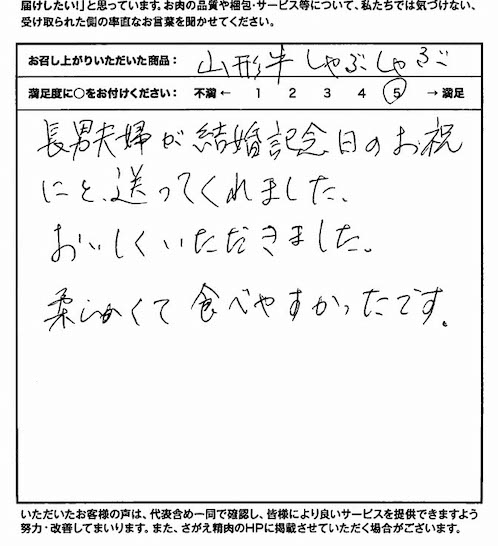 届けしたい!」と思っています。お肉の品質や梱包・サービス等について、私たちでは気づけない、
受け取られた側の率直なお言葉を聞かせてください。
お召し上がりいただいた商品: 山形牛 しゃぶしゃぶ
満足度に○をお付けください: 不満 ← 1 2 3 4 5 → 満足
長男夫婦が結婚記念日のお祝
にと、送ってくれました、
おいしくいただきました。
柔らかくて食べやすかったです。
いただいたお客様の声は、代表含め一同で確認し、皆様により良いサービスを提供できますよう
努力・改善してまいります。また、さがえ精肉のHPに掲載させていただく場合がございます。